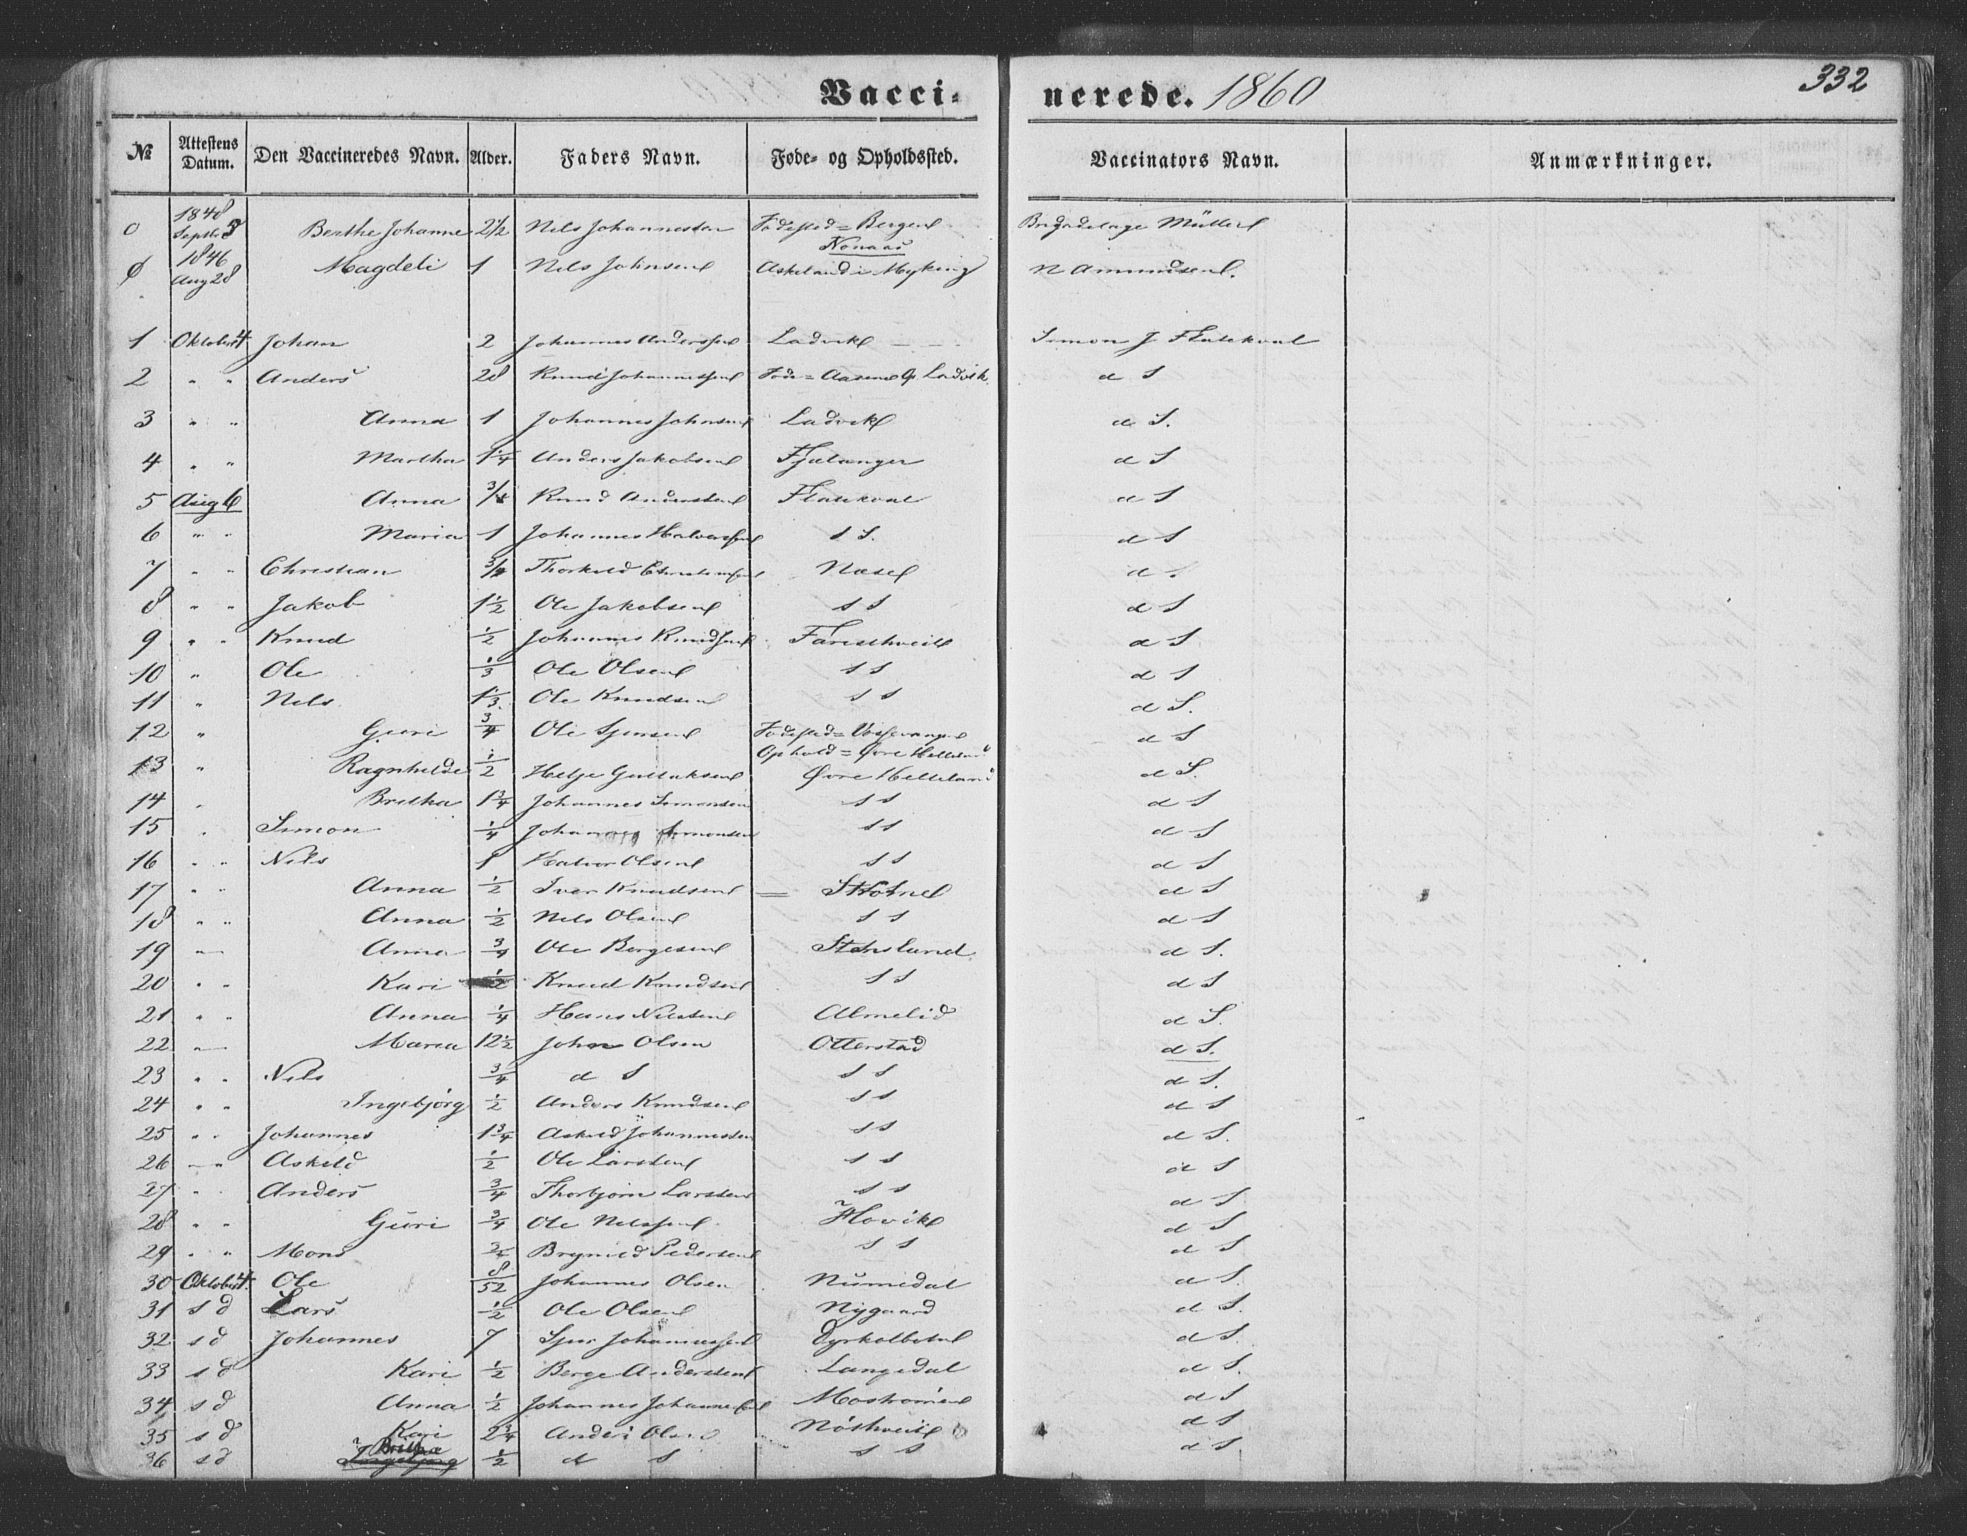 332
Vacci- nerede. 1860
№ Attestens Datum. Den Vaccineredes Navn. Alder. Faders Navn. Føde- og Opholdssted. Vaccinators Navn. Anmærkninger.
0 1848 Septbr 3 Berthe Johanne 2 1/2 Nels Johannessen Fødested = Bergen Müller
Nonaas
0 1846 Aug 28 Magdeli 1 Nels Johnsen Askeland i Myking N Amundsen.
1 Oktober 4 Johan 2 Johannes Anderssen Ladvik Simon J Flatekval
2 " " Anders 28 Knud Johannessen Føde = Aasene O. Ladvik d S
3 " " Anna 1 Johannes Johnsen Ladvik d S.
4 " " Martha 1 1/4 Anders Jakobsen Fjalanger d S
5 Aug 6 Anna 3/4 Knud Anderssen Flatekval d S
6 " " Maria 1 Johannes Halvorssen s S. d S
7 " " Christian 3/4 Thorkeld Christiansen Nase d S
8 " " Jakob 1 1/2 Ole Jakobsen s s d S
9 " " Knud 1/2 Johannes Knudsen Faresthveit d S
10 " Ole 1/3 Ole Olsen s s d S
11 " Nels 1 1/3 Ole Knudsen s s d S.
12 " Guri 3/4 Ole Sjursen Fødested = Vossevangen d S
Ophold = Øvre Helleland
13 " Ragnhilde 1/2 Helje Gullaksen Øvre Helleland d S.
14 " Britha 1 3/4 Johannes Simonsen s s d S
15 " Simon 1/4 Johannes Simonsen s s d S
16 " " Nils 1 Halvor Olsen s s d S
17 " " Anna 1/2 Iver Knudsen = Skotne d S
18 " " Anna 1/2 Nels Olsen s s d S
19 " Anna 3/4 Ole Bergesen Stensland d S.
20 " " Kari 1/2 Knud Knudsen s s d S
21 " " Anna 1/4 Hans Nilssen Almelid d S.
22 " Maria 12 1/2 John Olsen Otterstad d S.
23 " " Nils 3/4 d S s s d S.
24 " " Ingebjörg 1/2 Anders Knudsen s s d S
25 " " Johannes 1 3/4 Askeld Johannessen s s d S.
26 " " Askeld 1/2 Ole Larssen s s d S
27 " " Anders 3/4 Thorbjörn Larssen s s d S.
28 " " Guri 3/4 Ole Nelssen Hovik d S
29 " " Mons 3/4 Brynild Pedersen s s d S
30 Oktober 4. Ole 8/52 Johannes Olsen Numedal d S.
31 s d Lars 1/2 Ole Olsen Nygaard d S.
32 s d Johannes 7 Sjur Johannessen Dyrkolbotn d S.
33 s d Kari 1/2 Berge Anderssen Langedal d S.
34 s d Anna 1/2 Johannes Johannessen d S
35 s d Kari 2 3/4 Anders Olsen Nøsthveit d S
36 s d Britha Ingebjørg 1/2 d S s s d S.